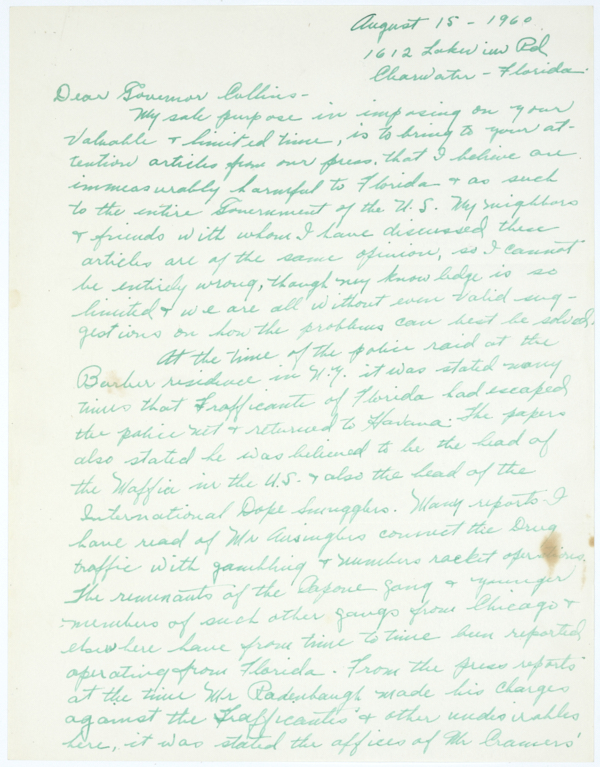 August 15 - 1960
1612 Lakeview Rd
Clearwater - Florida.
Dear Governor Collins -
My sole purpose in imposing on your
valuable & limited time, is to bring to your at-
tention articles from our press, that I believe are
immeasurably harmful to Florida & as such
to the entire Government of the U.S. My neighbors
& friends with whom I have discussed these
articles are of the same opinion, so I cannot
be entirely wrong, though my knowledge is so
limited & we are all without even valid sug-
gestions on how the problems can best be solved.
At the time of the police raid at the
Barber residence in N.Y. it was stated many
times that Trafficante of Florida had escaped
the police net & returned to Havana. The papers
also stated he was believed to be the head of
the Maffia in the U.S. & also the head of the
International Dope Smugglers. Many reports I
have read of Mr Ansinglers connect the Drug
traffic with gambling & numbers racket operations.
The remnants of the Capone gang & younger
members of such other gangs from Chicago &
elsewhere have from time to time been reported
operating from Florida. From the press reports
at the time Mr Radenbaugh made his charges
against the Trafficantis' & other undesirables
here, it was stated the offices of Mr Cramers'